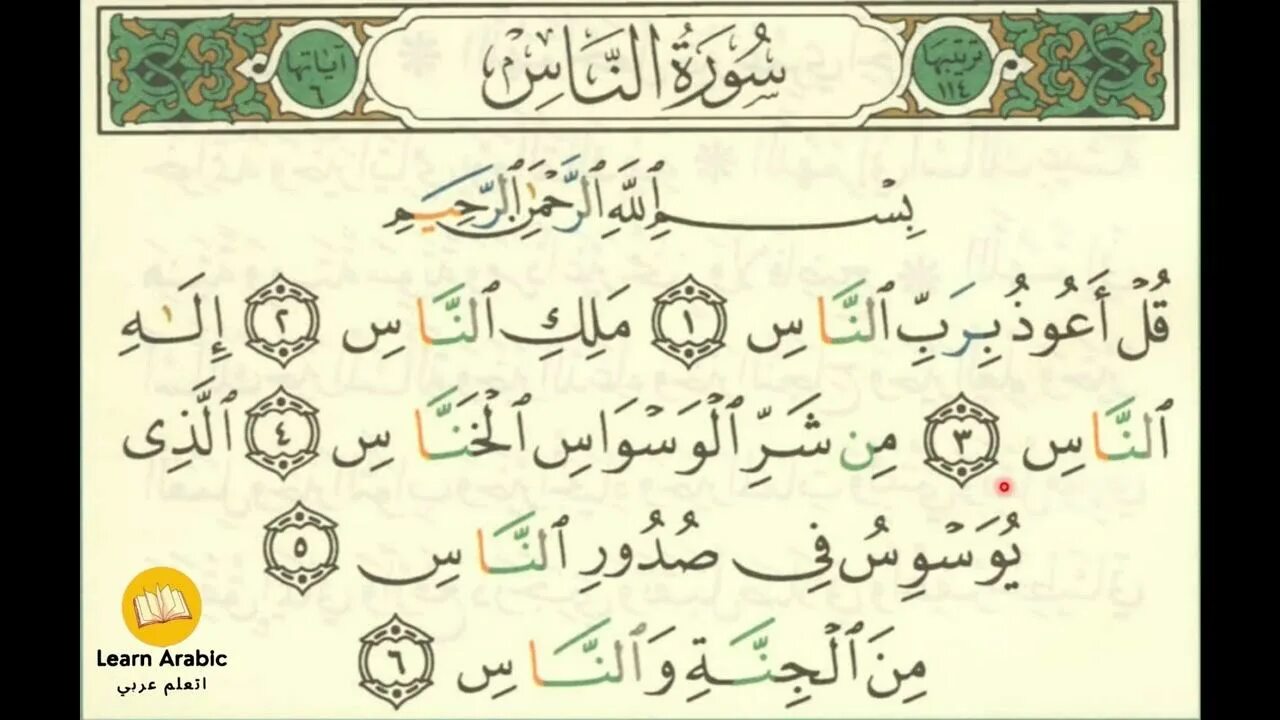 ترتيبها ١١٤ سُورَةُ النَّاسِ آياتها ٦
بِسْمِ ٱللَّهِ ٱلرَّحْمَٰنِ ٱلرَّحِيمِ
قُلْ أَعُوذُ بِرَبِّ ٱلنَّاسِ ١ مَلِكِ ٱلنَّاسِ ٢ إِلَٰهِ
ٱلنَّاسِ ٣ مِن شَرِّ ٱلْوَسْوَاسِ ٱلْخَنَّاسِ ٤ ٱلَّذِى
يُوَسْوِسُ فِى صُدُورِ ٱلنَّاسِ ٥
مِنَ ٱلْجِنَّةِ وَٱلنَّاسِ ٦
Learn Arabic
اتعلم عربي